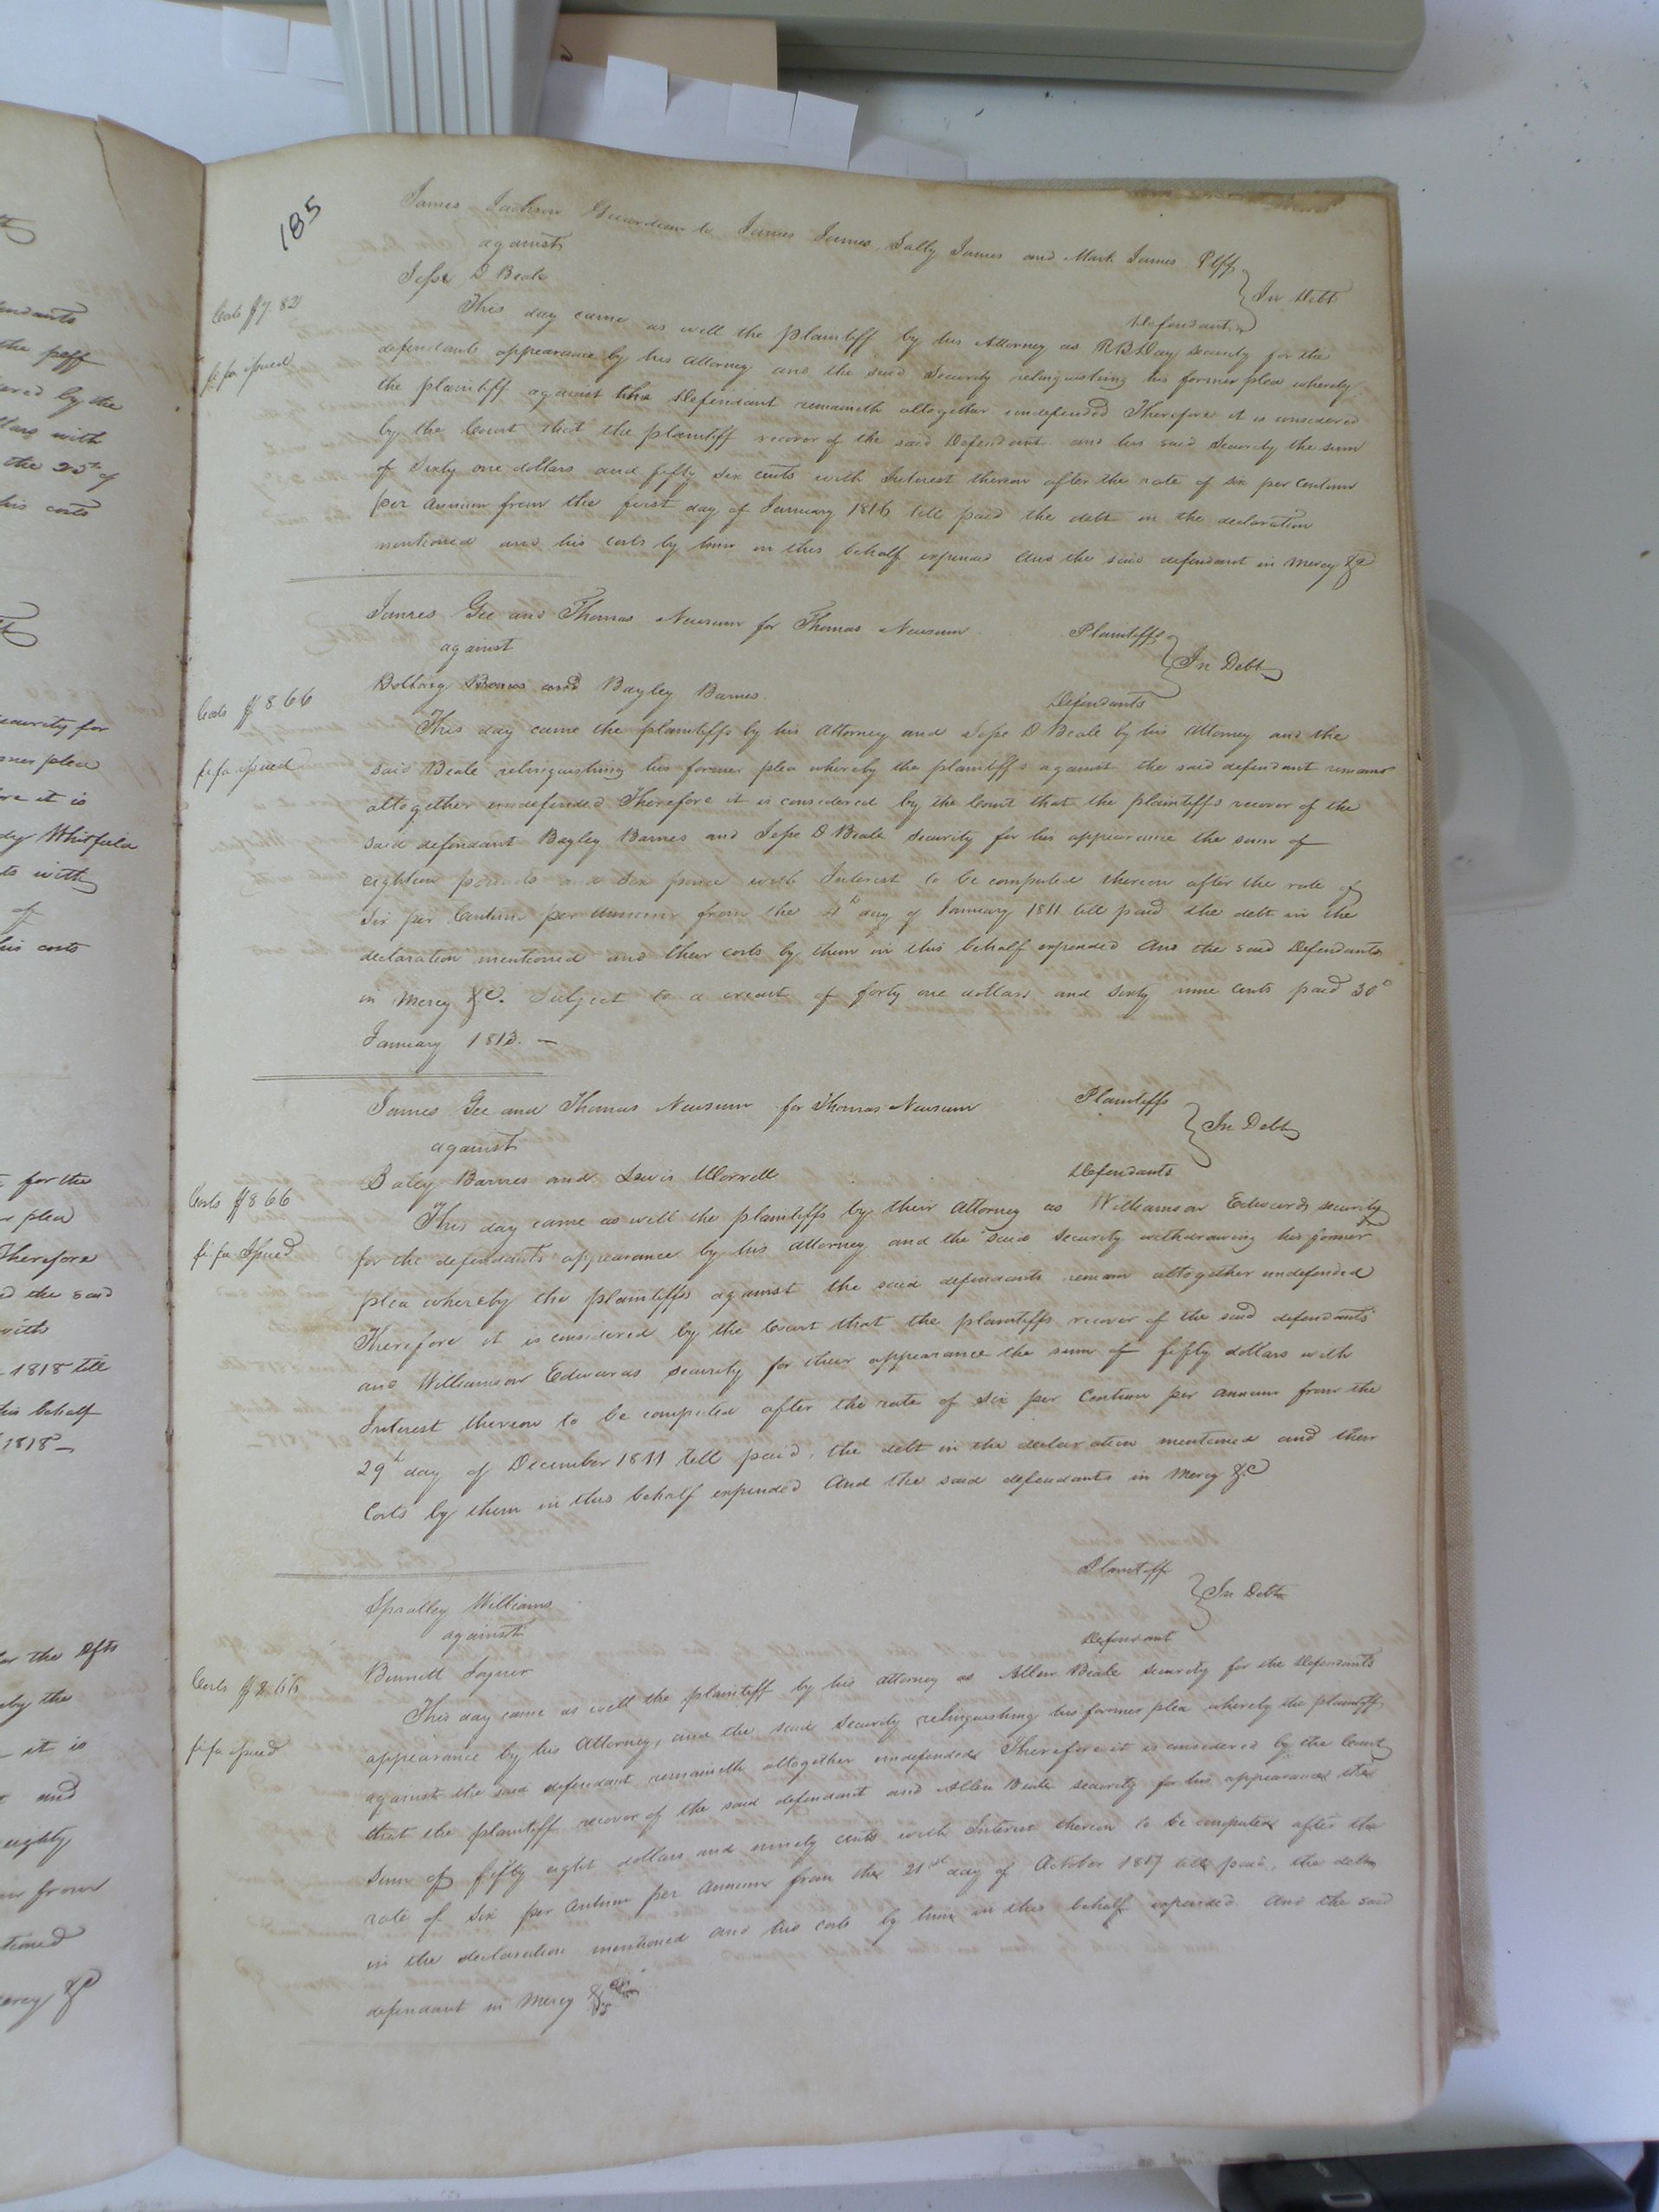 185
James Jackson Guardian to James James, Sally James and Mark James Plff
against
In Debt
Jesse D Beale
Defendant
Costs $7.82
fi fa issued
This day came as well the plaintiff by his Attorney as R B Day security for the
defendants appearance by his attorney and the said Security relinquishing his former plea whereby
the plaintiff against the Defendant remaineth altogether undefended Therefore it is considered
by the Court that the plaintiff recover of the said Defendant and his said Security the sum
of Sixty one dollars and fifty six cents with Interest thereon after the rate of six per Centum
per annum from the first day of January 1816 till paid the debt in the declaration
mentioned and his costs by him in this behalf expended And the said defendant in mercy &c
James Gee and Thomas Newsum for Thomas Newsum Plaintiffs
against
In Debt
Bolling Barnes and Bayley Barnes Defendants
Costs $8.66
fi fa issued
This day came the plaintiffs by his Attorney and Jesse D Beale by his Attorney and the
said Beale relinquishing his former plea whereby the plaintiffs against the said defendant remains
altogether undefended Therefore it is considered by the Court that the plaintiffs recover of the
said defendant Bayley Barnes and Jesse D Beale Security for his appearance the sum of
eighteen pounds and six pence with Interest to be computed thereon after the rate of
Six per Centum per annum from the 4th day of January 1811 till paid the debt in the
declaration mentioned and their costs by them in this behalf expended And the said Defendants
in mercy &c. Subject to a credit of forty one dollars and sixty nine cents paid 30th
January 1813. —
James Gee and Thomas Newsum for Thomas Newsum Plaintiffs
against
In Debt
Baley Barnes and Lewis Worrell Defendants
Costs $8 66
fi fa Issued
This day came as well the plaintiffs by their Attorney as Williamson Edwards security
for the defendants appearance by his attorney and the said security withdrawing his former
plea whereby the plaintiffs against the said defendants remain altogether undefended
Therefore it is considered by the Court that the plaintiffs recover of the said defendants
and Williamson Edwards security for their appearance the sum of fifty dollars with
Interest thereon to be computed after the rate of six per Centum per annum from the
29th day of December 1811 till paid, the debt in the declaration mentioned and their
Costs by them in this behalf expended And the said defendants in mercy &c
Spratley Williams Plaintiff
against
In Debt
Bennett Joyner Defendant
Costs $8.66
fi fa issued
This day came as well the plaintiff by his attorney as Allen Beale security for the Defendants
appearance by his Attorney, and the said Security relinquishing his former plea whereby the plaintiff
against the said defendant remaineth altogether undefended Therefore it is considered by the Court
that the plaintiff recover of the said defendant and Allen Beale security for his appearance the
Sum of fifty eight dollars and ninety cents with Interest thereon to be computed after the
rate of Six per Centum per Annum from the 21st day of October 1817 till paid, the debt
in the declaration mentioned and his costs by him in this behalf expended. And the said
defendant in mercy &c